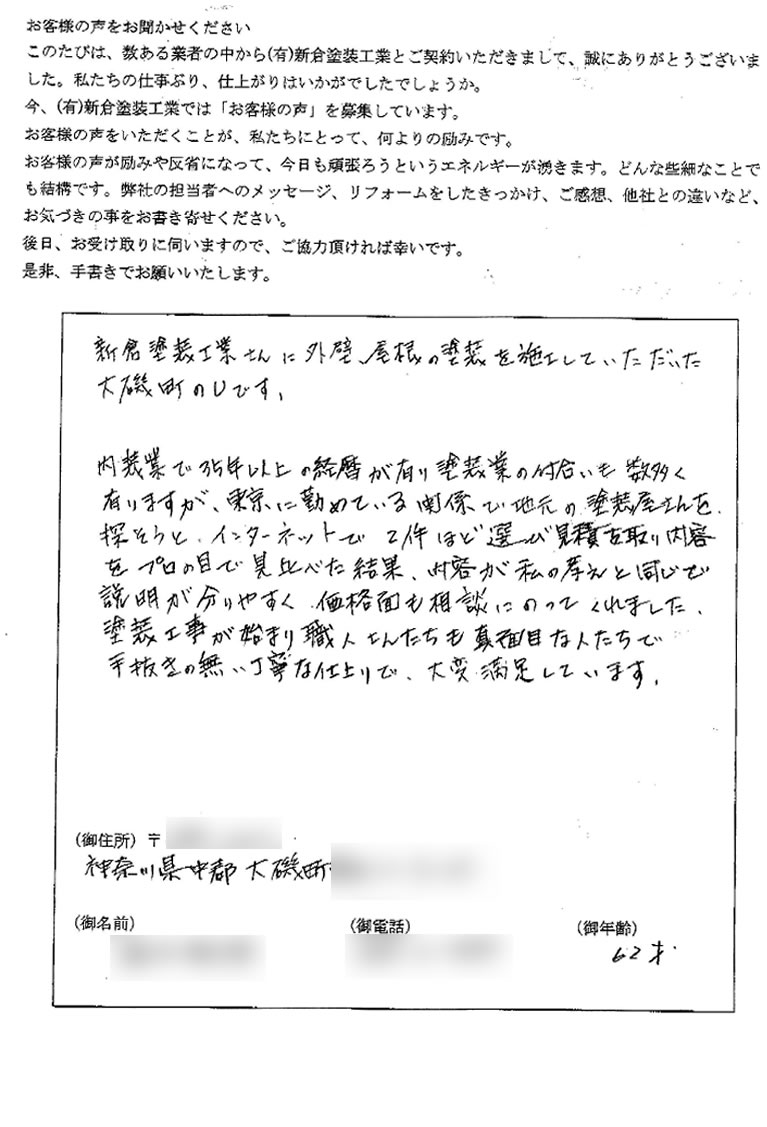 お客様の声をお聞かせください
このたびは、数ある業者の中から(有)新倉塗装工業とご契約いただきまして、誠にありがとうございま
した。私たちの仕事ぶり、仕上がりはいかがでしたでしょうか。
今、(有)新倉塗装工業では「お客様の声」を募集しています。
お客様の声をいただくことが、私たちにとって、何よりの励みです。
お客様の声が励みや反省になって、今日も頑張ろうというエネルギーが湧きます。どんな些細なことで
も結構です。弊社の担当者へのメッセージ、リフォームをしたきっかけ、ご感想、他社との違いなど、
お気づきの事をお書き寄せください。
後日、お受け取りに伺いますので、ご協力頂ければ幸いです。
是非、手書きでお願いいたします。
新倉塗装工業さんに外壁、屋根の塗装を施工していただいた
大磯町のUです。
内装業で35年以上の経暦が有り塗装業の付合いも数多く
有りますが、東京に勤めている関係で地元の塗装屋さんを
探そうと、インターネットで2件ほど選び見積を取り内容
をプロの目で見比べた結果、内容が私の考えと同じで
説明が分りやすく価格面も相談にのってくれました、
塗装工事が始まり職人さんたちも真面目な人たちで
手抜きの無い丁寧な仕上りで、大変満足しています。
(御住所) 〒
神奈川県中郡大磯町
(御名前) (御電話) (御年齢)
62才